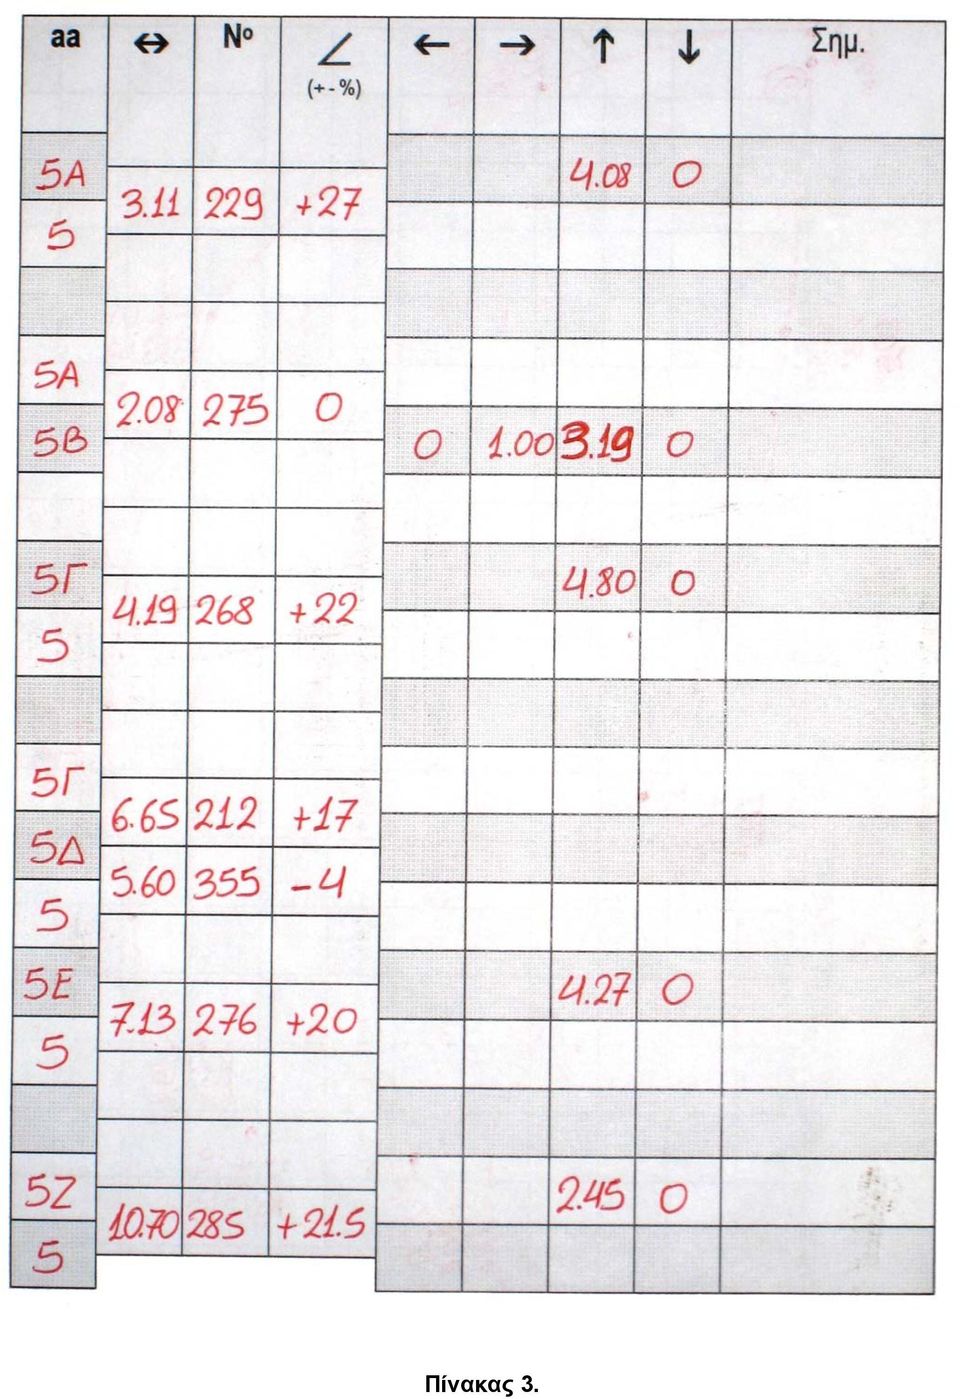 αα ↔ Nº ∠ ← → ↑ ↓ Σημ.
(+ - %)
5Α 4.08 0
3.11 229 +27
5
5Α
2.08 275 0
5Β 0 1.00 3.19 0
5Γ 4.80 0
4.19 268 +22
5
5Γ
6.65 212 +17
5Δ
5.60 355 -4
5
5Ε 4.27 0
7.13 276 +20
5
5Ζ 2.45 0
10.70 285 +21.5
5
Πίνακας 3.